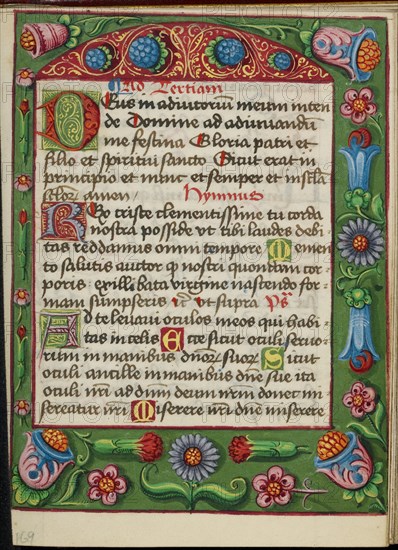 Ad Tertiam
Deus in adiutorium meum inten
de Domine ad adiuuandũ
me festina Gloria patri et
filio et spiritui sancto Sicut erat in
principio et nunc et semper et in secla
seclor amen Hymnus
Rex criste clementissime tu corda
nostra posside vt tibi laudes debi
tas reddamus omni tempore Memen
to salutis auctor q nostri quondam cor
poris ex illibata virgine nascendo for
mam sumpseris vt supra Ps
Ad te leuaui oculos meos qui habi
tas in celis Ecce sicut oculi seruo
rum in manibus dnor suor Sicut
oculi ancille in manibus dne sue ita
oculi nri ad dnm deum nrm donec mi
sereatur nri Miserere nri dne miserere
169